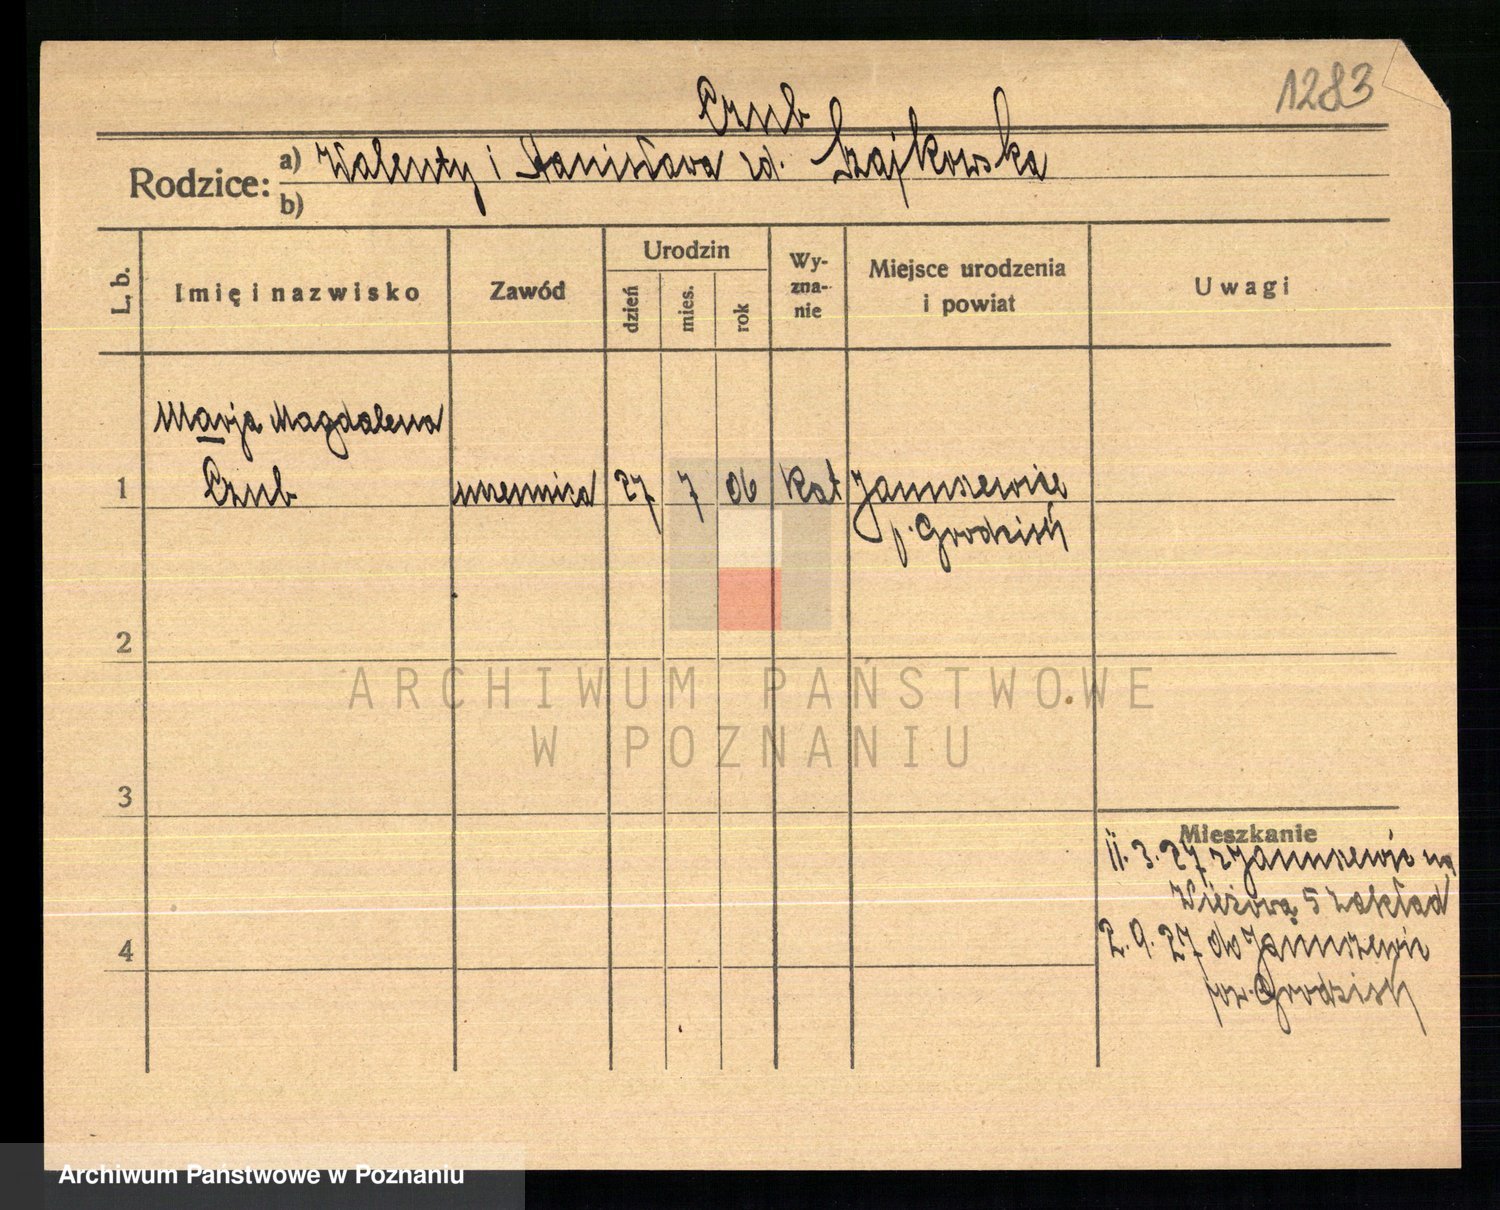 1283
Czub
Rodzice: a) Walenty i Stanisława zd. Szajkowska
b)
L. b.
Imię i nazwisko
Zawód
Urodzin
dzień
mies.
rok
Wy-
zna-
nie
Miejsce urodzenia
i powiat
Uwagi
Marja Magdalena
1 Czub uczennica 27 7 06 kat Januszewice
p. Grodzisk
2
3
4
Mieszkanie
11. 3. 27 z Januszewic na
Wieżową 5 zakład
2. 9. 27 do Januszewic
pow. Grodzisk
ARCHIWUM PAŃSTWOWE
W POZNANIU
Archiwum Państwowe w Poznaniu